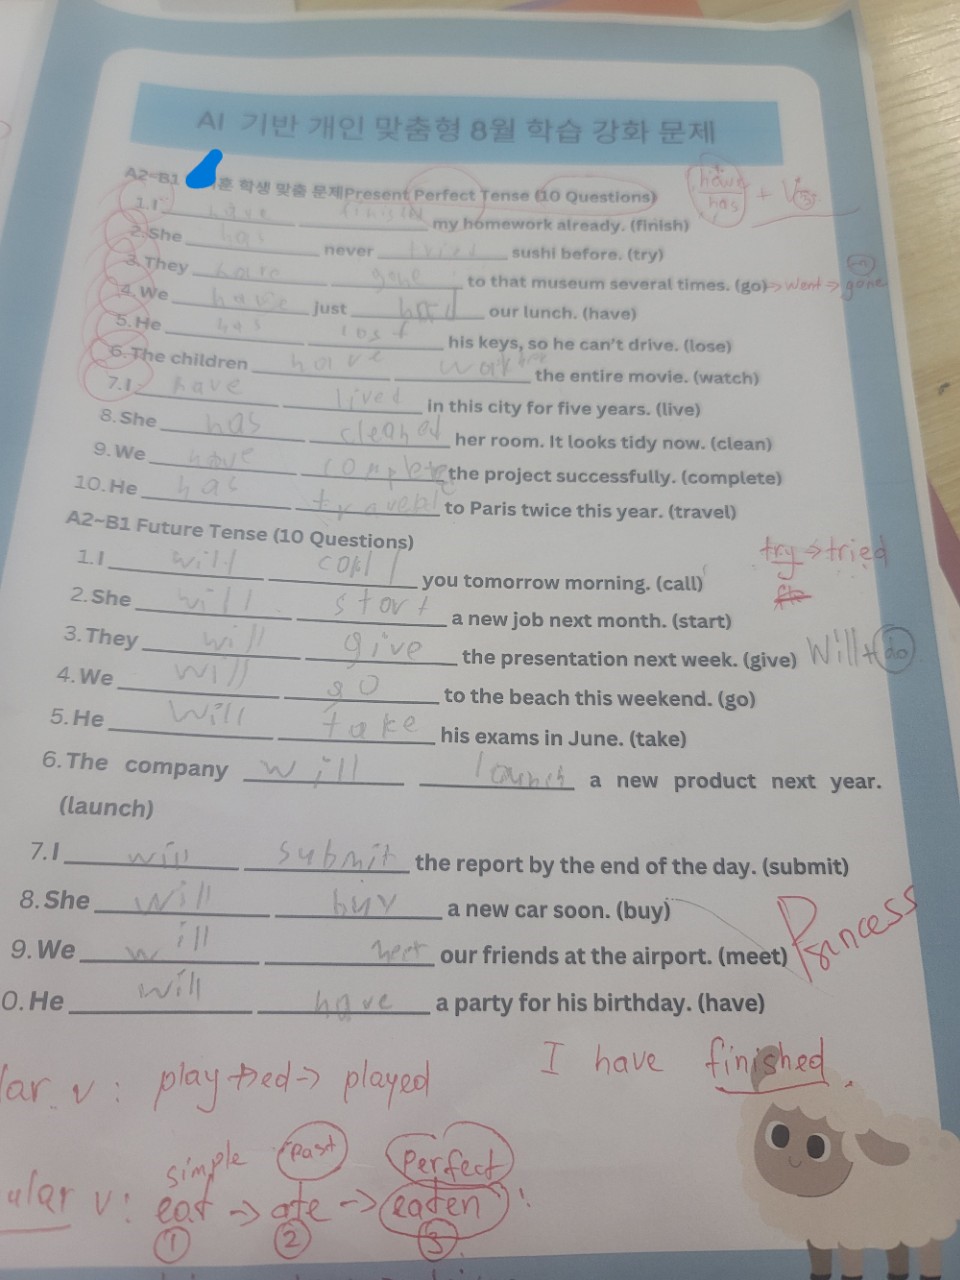 AI 기반 개인 맞춤형 8월 학습 강화 문제
A2~B1 훈 학생 맞춤 문제Present Perfect Tense (10 Questions)
have
has + V3
1. I have my homework already. (finish)
2. She has never tried sushi before. (try)
3. They have gone to that museum several times. (go)→went→gone
4. We have just had our lunch. (have)
5. He has lost his keys, so he can't drive. (lose)
6. The children have the entire movie. (watch)
7. I have lived in this city for five years. (live)
8. She has cleaned her room. It looks tidy now. (clean)
9. We have complete the project successfully. (complete)
10. He has to Paris twice this year. (travel)
A2~B1 Future Tense (10 Questions)
try→tried
1. I will call you tomorrow morning. (call)
2. She will start a new job next month. (start)
3. They will give the presentation next week. (give) Will + do
4. We will go to the beach this weekend. (go)
5. He will take his exams in June. (take)
6. The company will launch a new product next year.
(launch)
7. I will submit the report by the end of the day. (submit)
8. She will buy a new car soon. (buy)
9. We will meet our friends at the airport. (meet)
Princess
0. He will have a party for his birthday. (have)
I have finished.
lar v: play+ed→ played
simple past perfect
ular v: eat → ate → eaten
1 2 3